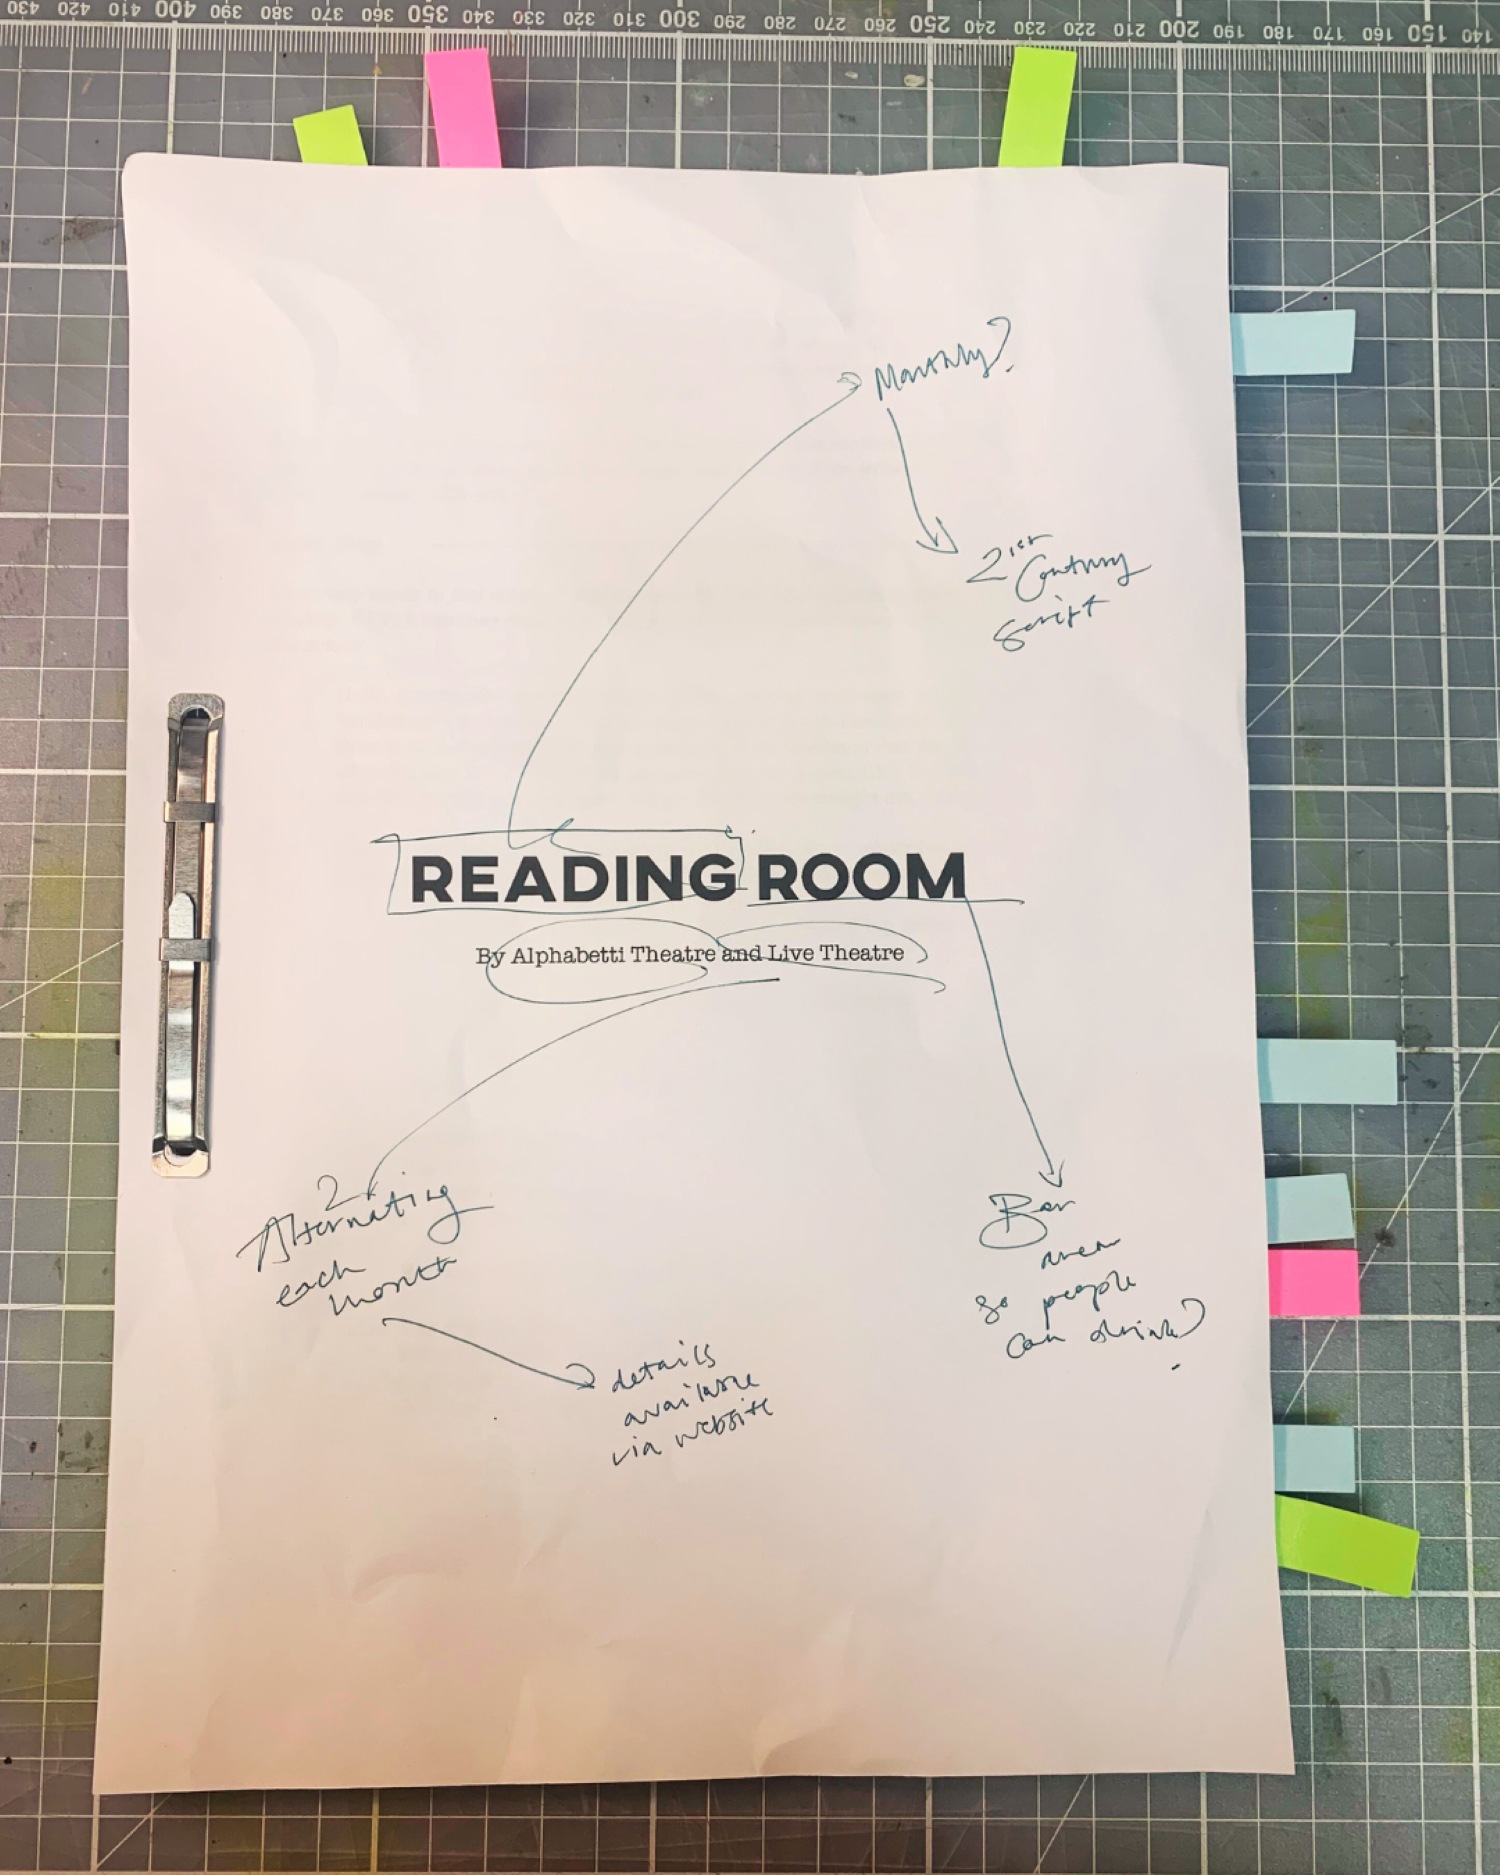 430 420 410 400 390 380 370 360 350 340 330 320 310 300 290 280 270 260 250 240 230 220 210 200 190 180 170 160 150 140
Monthly?
21st
Century
Script
READING ROOM
By Alphabetti Theatre and Live Theatre
2
Alternating
each
month
details
available
via website
Bar
area
so people
can drink?